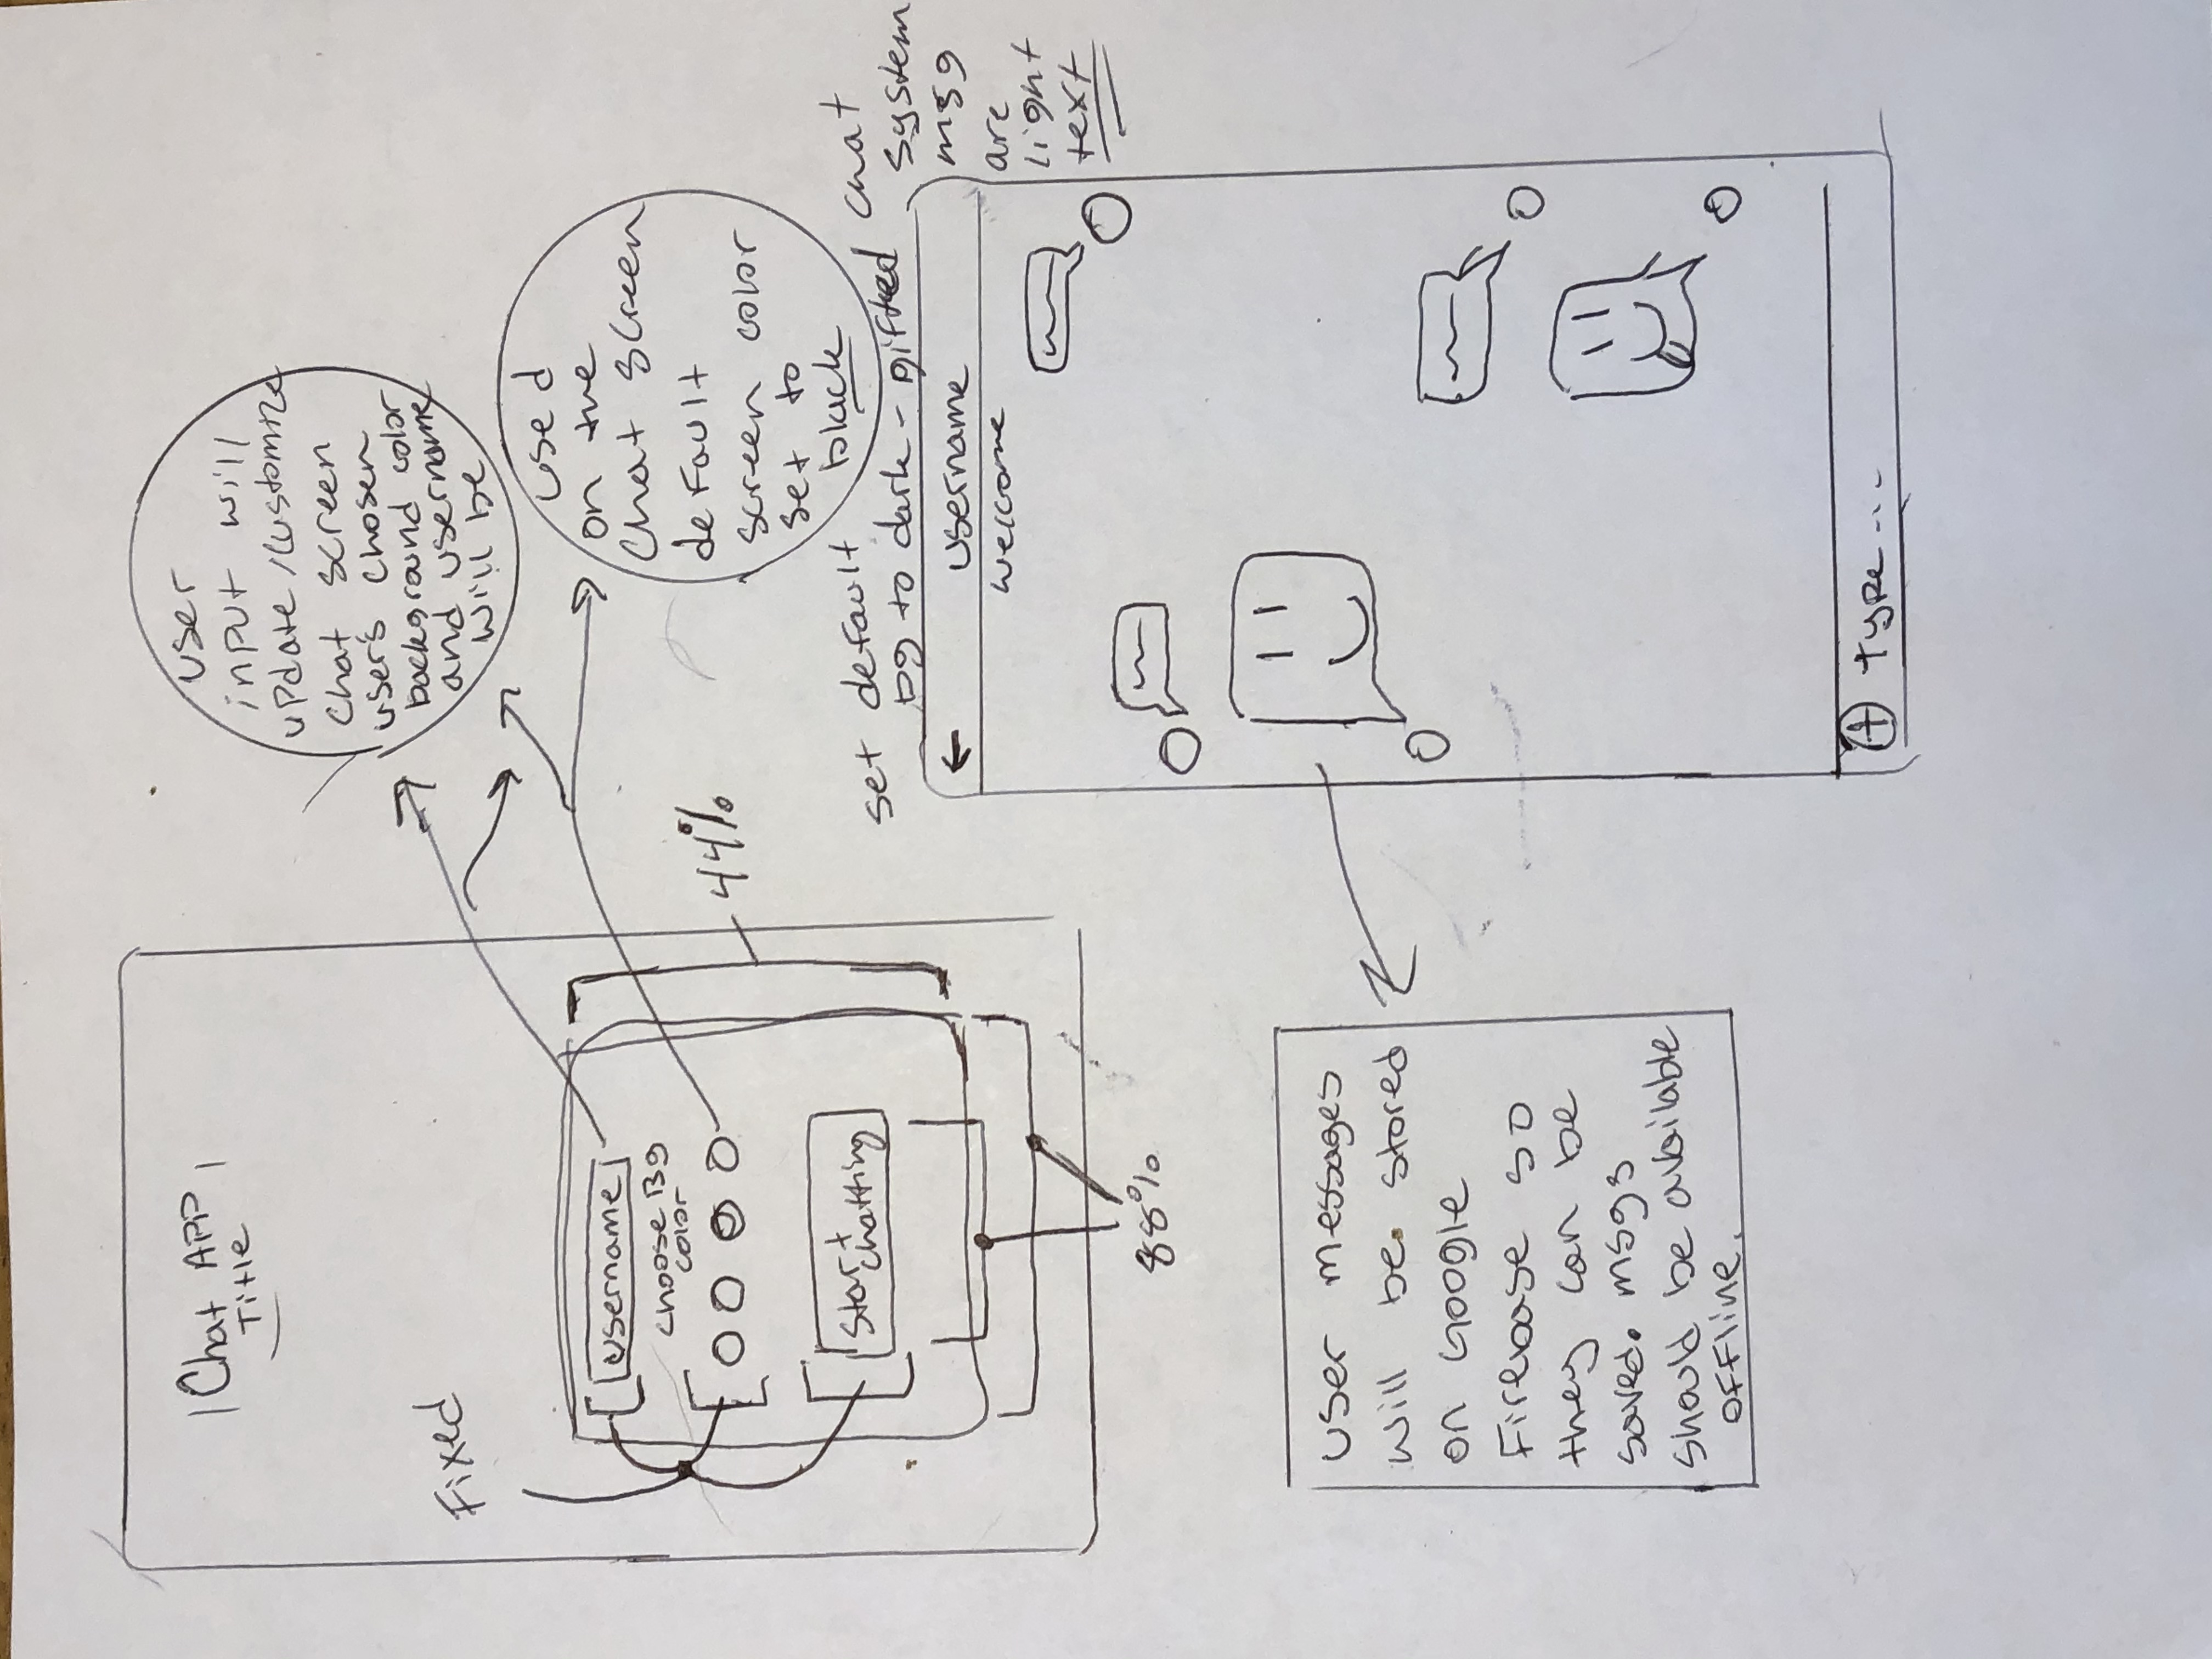 Chat APP
Title
Fixed
username
choose Bg
color
Start
chatting
44%
88%
user
input will
update/customize
chat screen
user's chosen
background color
and username
will be
used
on the
chat screen
default
screen color
set to
black
set default
bg to dark - gifted chat
system
msg
are
light
text
←
username
welcome
+ type...
user messages
will be stored
on Google
Firebase so
they can be
saved. msgs
should be available
offline.